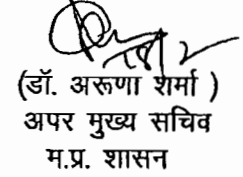 (डॉ. अरूणा शर्मा )
अपर मुख्य सचिव
म.प्र. शासन